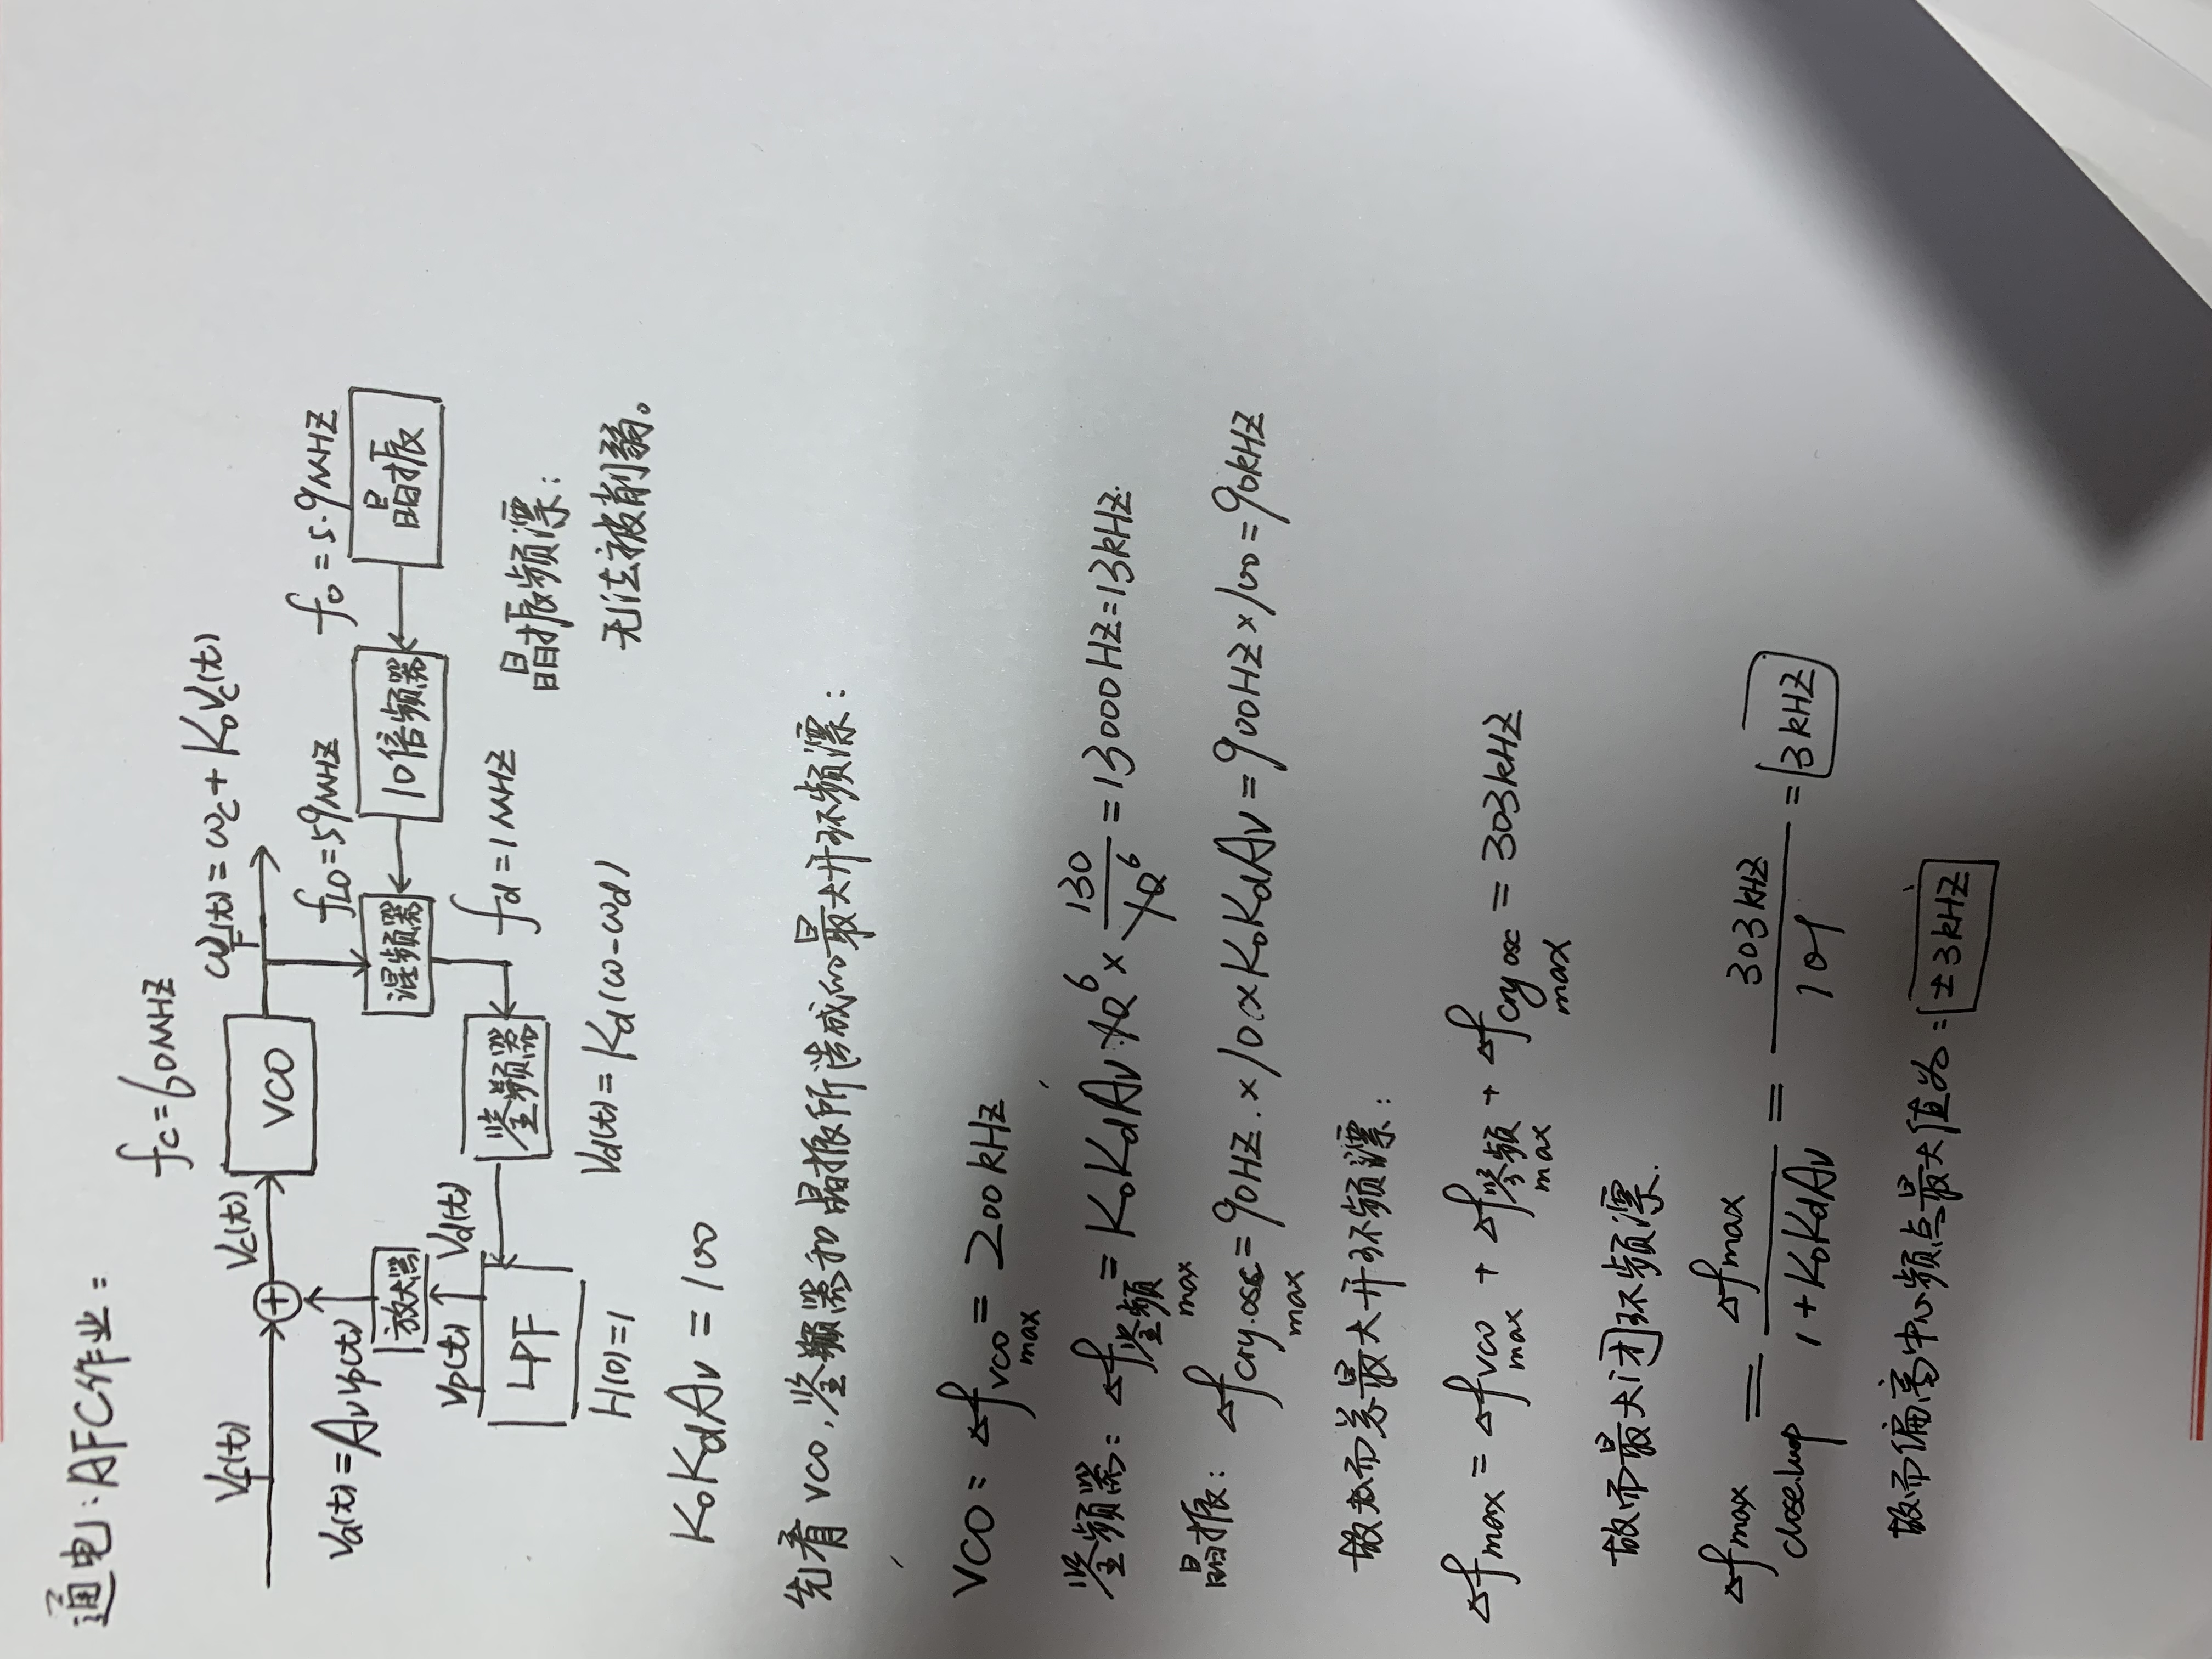 通电:AFC作业:
fc=60MHZ
Vf(t)
Vc(t)
VCO
ωF(t)=ωc+KoVc(t)
fLO=59MHZ
fo=5.9MHZ
Va(t)=AvVp(t)
放大器
混频器
10倍频器
晶振
Vp(t)
Vd(t)
LPF
鉴频器
fd=1MHZ
晶振频漂:
H(0)=1
Vd(t)=Kd(ω-ωd)
无法被削弱。
KoKdAv=100
先看VCO,鉴频器和晶振所造成的最大开环频漂:
VCO: △fvco max=200kHZ
鉴频器: △f鉴频 max=KoKdAv·10^6×130/10^6=13000HZ=13kHZ.
晶振: △fcry.osc max=90HZ.×10×KoKdAv=900HZ×100=90kHZ
故而总最大开环频漂:
△fmax=△fvco max+△f鉴频 max+△fcry osc max=303kHZ
故而最大闭环频漂.
△fmax close.loop=△fmax/(1+KoKdAv)=303kHZ/101=3kHZ
故而偏离中心频点最大值为:±3kHZ